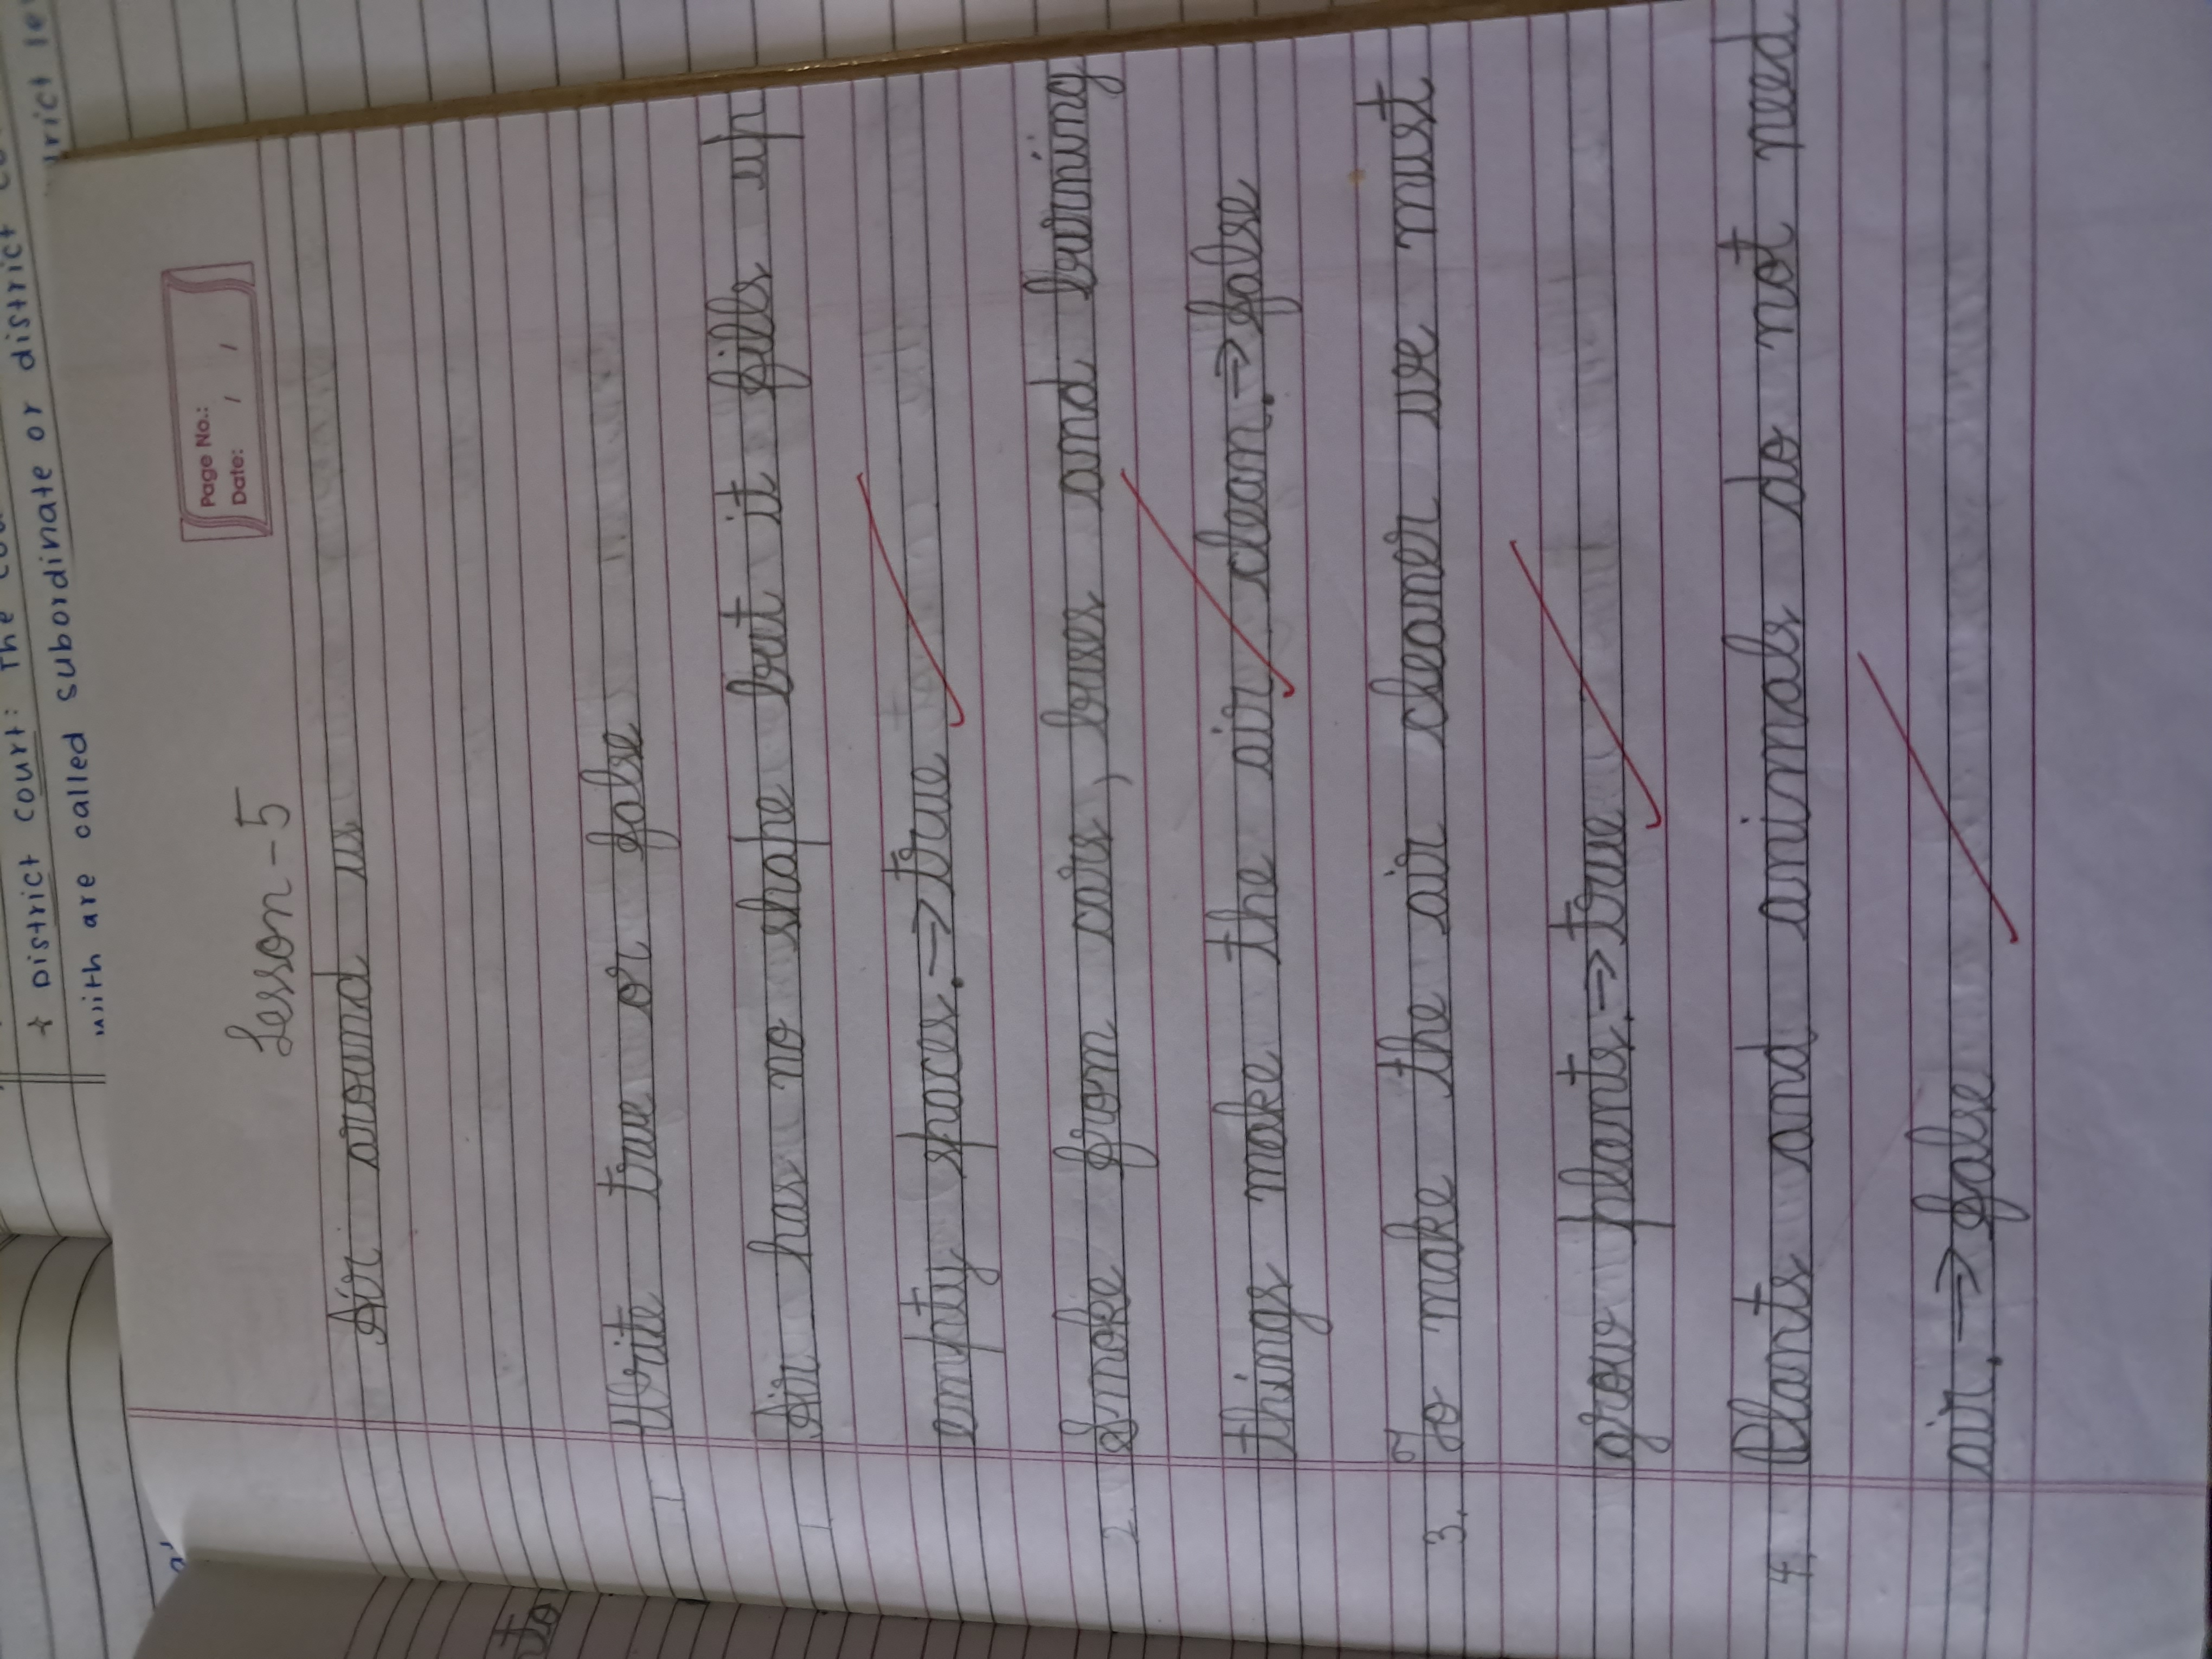 * District court: The
with are called subordinate or district
Page No.:
Date: / /
Lesson-5
Air around us
I Write true or false
1. Air has no shape but it fills up
empty spaces.→true
2. Smoke from cars, buses and burning
things make the air clean.→false
3. To make the air cleaner we must
grow plants.→true
4. Plants and animals do not need
air.→false